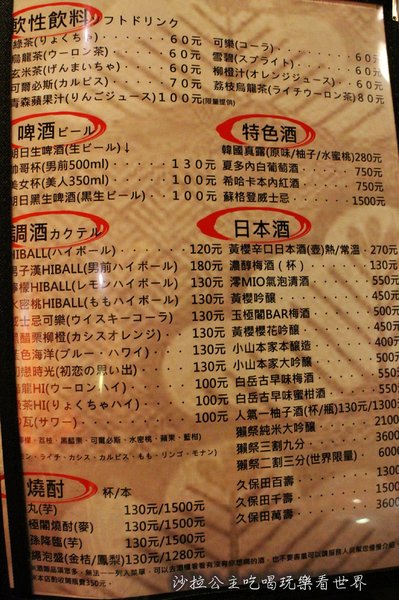 軟性飲料ソフトドリンク
綠茶(りょくちゃ)‧‧‧‧‧‧60元
烏龍茶(ウーロン茶)‧‧‧‧60元
玄米茶(げんまいちゃ)‧‧‧60元
可爾必斯(カルピス)‧‧‧‧70元
青森蘋果汁(りんごジュース)100元(限量提供)
可樂(コーラ)‧‧‧‧60元
雪碧(スプライト)‧‧‧60元
柳橙汁(オレンジジュース)‧‧60元
荔枝烏龍茶(ライチウーロン茶)80元
啤酒ビール
朝日生啤酒(生ビール)↓
帥哥杯(男前500ml)‧‧‧130元
美女杯(美人350ml)‧‧‧100元
朝日黑生啤酒(黒生ビール)‧130元
特色酒
韓國真露(原味/柚子/水蜜桃)280元
夏多內白葡萄酒‧‧‧750元
希哈卡本內紅酒‧‧‧750元
蘇格登威士忌‧‧‧1500元
調酒カクテル
HIBALL(ハイボール)‧‧‧120元
男子漢HIBALL(男前ハイボール)180元
檸檬HIBALL(レモンハイボール)130元
水蜜桃HIBALL(ももハイボール)130元
威士忌可樂(ウイスキーコーラ)130元
黑醋栗柳橙(カシスオレンジ)130元
藍色海洋(ブルー・ハワイ)130元
初戀時光(初恋の思い出)130元
烏龍HI(ウーロンハイ)100元
綠茶HI(りょくちゃハイ)100元
沙瓦(サワー)‧‧‧100元
荔枝、黑醋栗、可爾必斯、水密桃、蘋果、藍柑)
レモン・ライチ・カシス・カルピス・もも・リンゴ・モナン)
日本酒
黃櫻辛口日本酒(壺)熱/常溫‧270元
濃醇梅酒(杯)‧‧‧130元
澪MIO氣泡清酒‧‧‧550元
黃櫻吟釀‧‧‧450元
玉極閣BAR梅酒‧‧‧500元
黃櫻櫻花吟釀‧‧‧450元
小山本家本釀造‧‧‧400元
小山本家大吟釀‧‧‧500元
白岳古早味梅酒‧‧‧550元
白岳古早味蜜柑酒‧‧‧550元
人氣一柚子酒(杯/瓶)130元/1300元
獺祭大吟釀‧‧‧2100元
獺祭三割九分‧‧‧3600元
獺祭二割三分(世界限量)6000元
久保田百壽
久保田千壽
久保田萬壽‧‧‧3600元
燒酎 杯/本
丸(芋)‧‧‧130元/1500元
極閣燒酎(麥)‧130元/1500元
天孫降臨(芋)‧130元/1500元
沖繩泡盛(金桔/鳳梨)130元/1280元
沙拉公主吃喝玩樂看世界